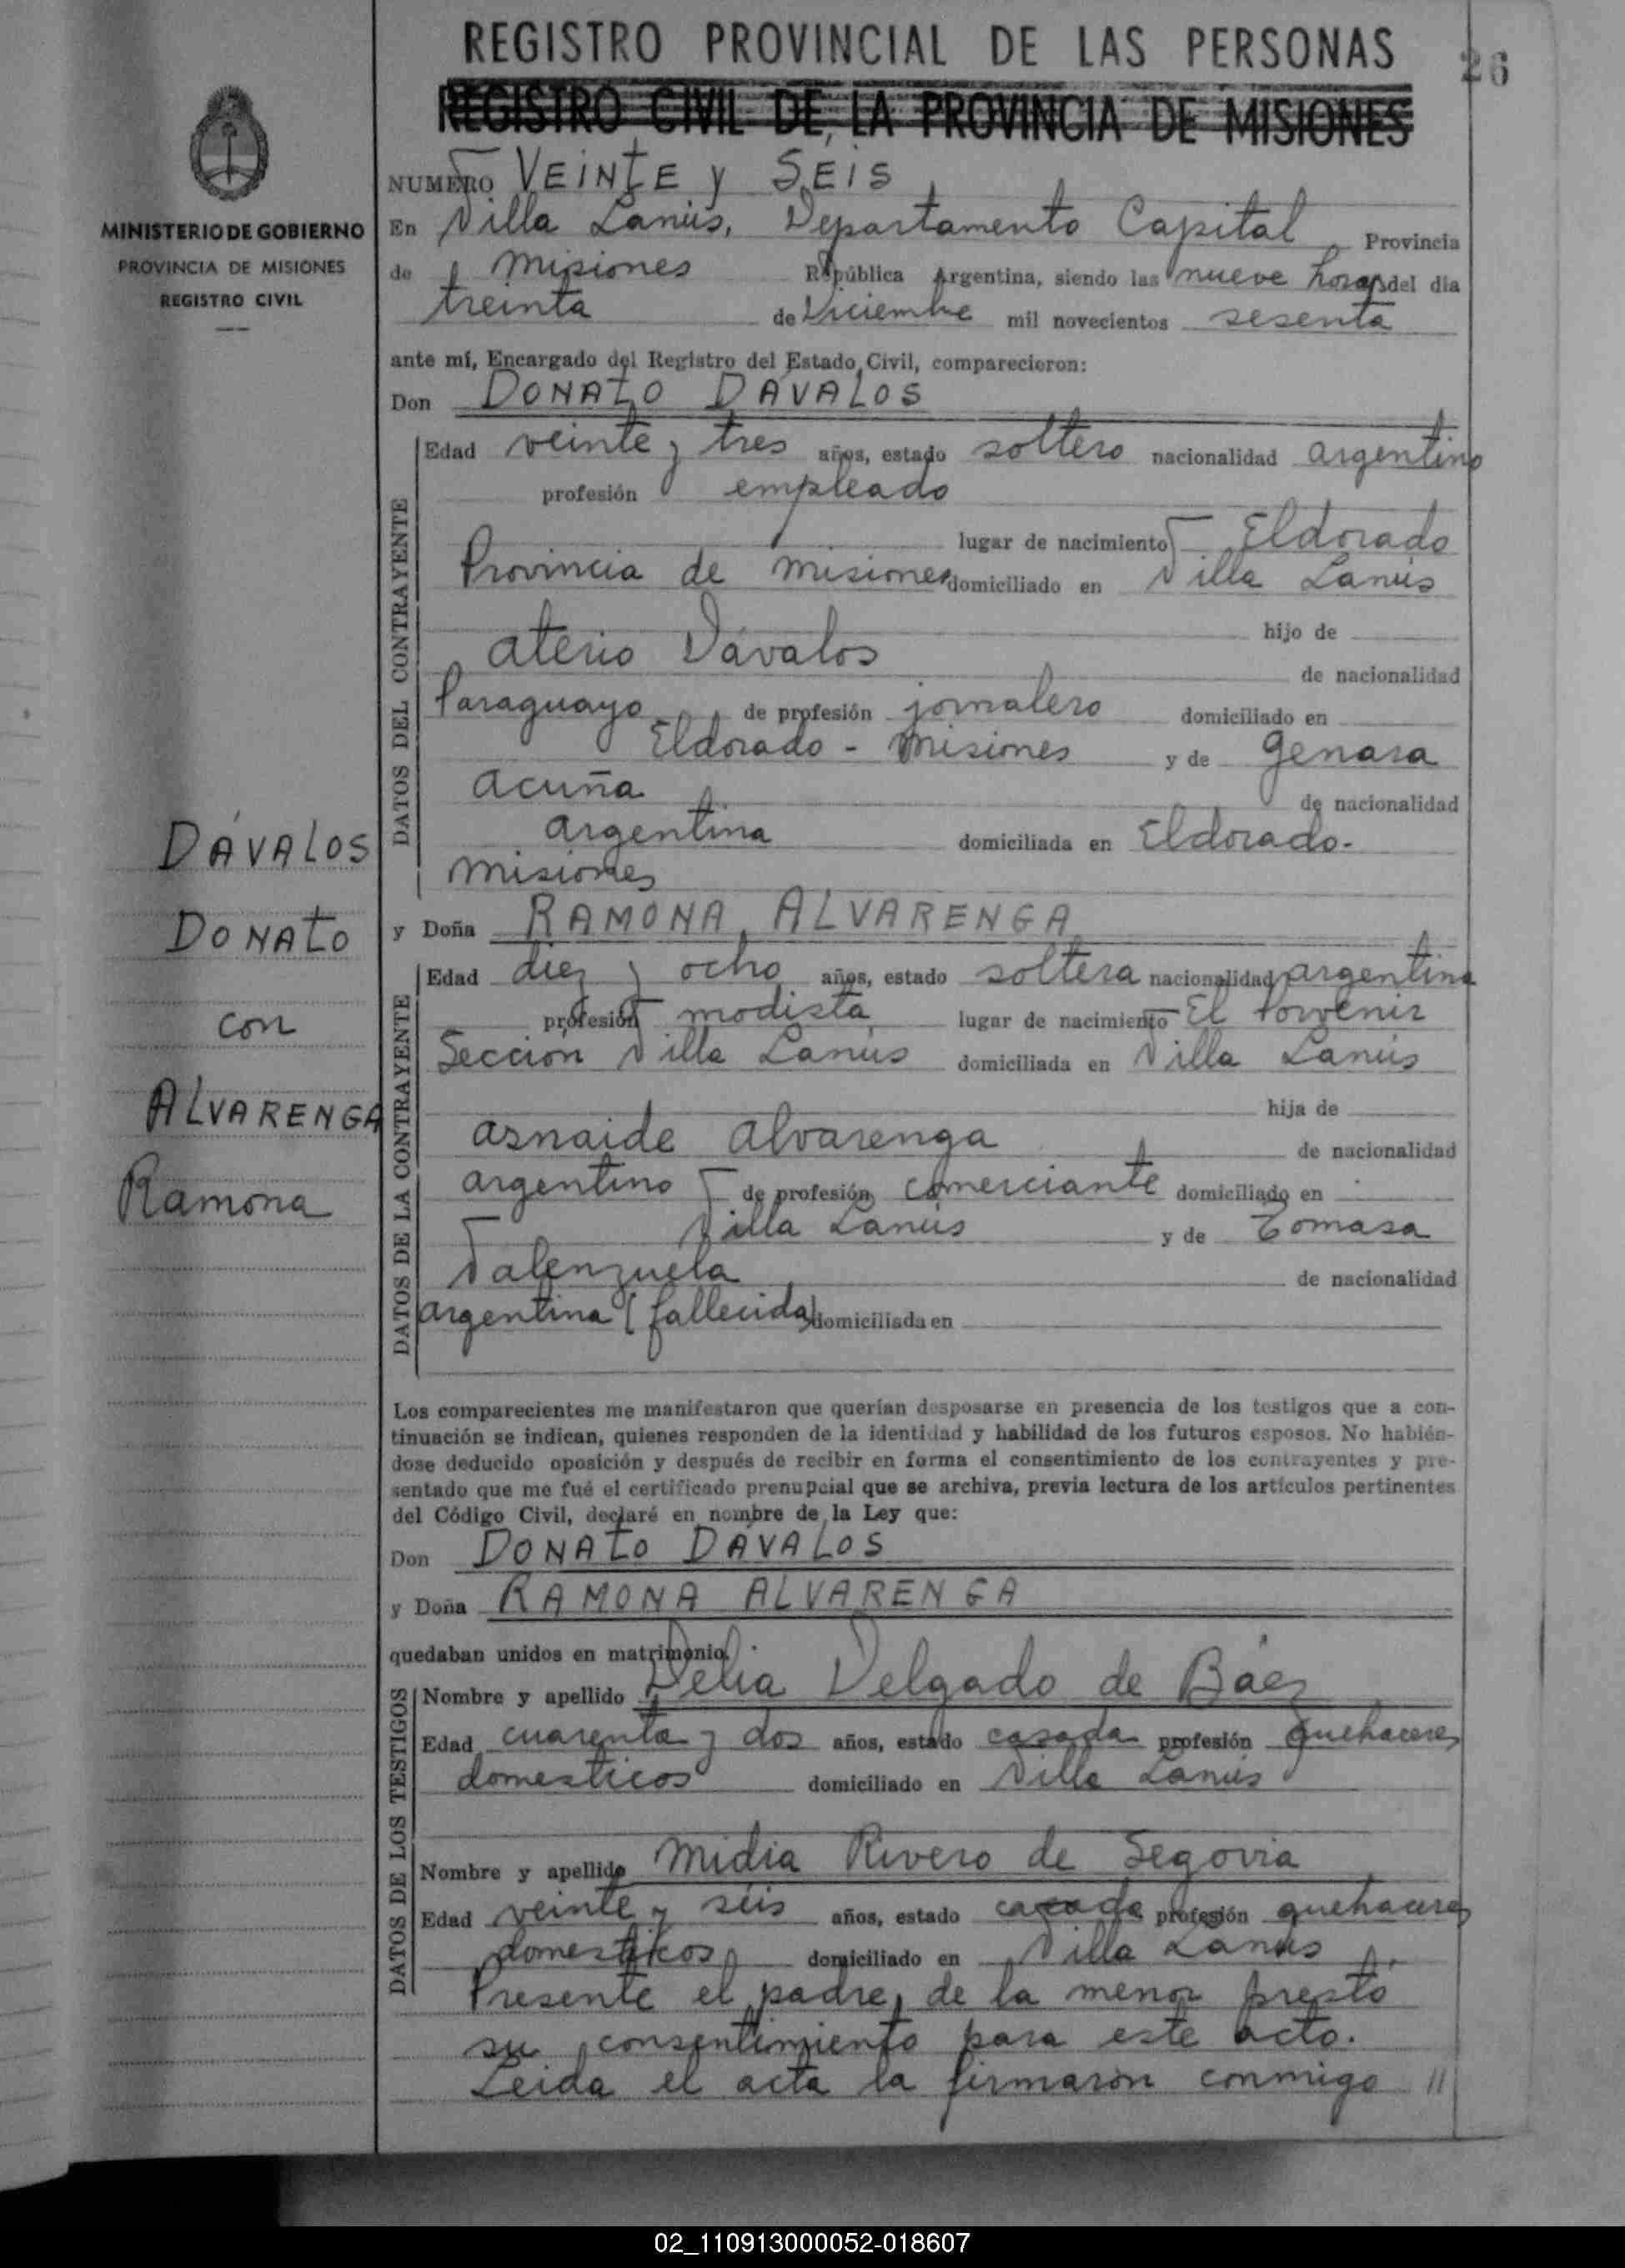 REGISTRO PROVINCIAL DE LAS PERSONAS
26
REGISTRO CIVIL DE LA PROVINCIA DE MISIONES
MINISTERIO DE GOBIERNO
PROVINCIA DE MISIONES
REGISTRO CIVIL
NUMERO VEINTE y SEIS
En Villa Lanús, Departamento Capital Provincia
de Misiones República Argentina, siendo las nueve horas del dia
treinta de Diciembre mil novecientos sesenta
ante mí, Encargado del Registro del Estado Civil, comparecieron:
Don DONATO DÁVALOS
DATOS DEL CONTRAYENTE
Edad veinte y tres años, estado soltero nacionalidad argentino
profesión empleado
lugar de nacimiento Eldorado
Provincia de Misiones domiciliado en Villa Lanús
hijo de
aterio Dávalos
de nacionalidad
Paraguayo de profesión jornalero domiciliado en
Eldorado - Misiones y de Genara
Acuña
de nacionalidad
argentina domiciliada en Eldorado-
Misiones
DÁVALOS
DONATO
con
ALVARENGA
Ramona
y Doña RAMONA ALVARENGA
DATOS DE LA CONTRAYENTE
Edad diez y ocho años, estado soltera nacionalidad argentina
profesión modista lugar de nacimiento El Porvenir
Sección Villa Lanús domiciliada en Villa Lanús
hija de
Asnaide Alvarenga
de nacionalidad
argentino de profesión comerciante domiciliado en
Villa Lanús y de Tomasa
Valenzuela de nacionalidad
argentina (fallecida) domiciliada en
Los comparecientes me manifestaron que querían desposarse en presencia de los testigos que a con-
tinuación se indican, quienes responden de la identidad y habilidad de los futuros esposos. No habién-
dose deducido oposición y después de recibir en forma el consentimiento de los contrayentes y pre-
sentado que me fué el certificado prenupcial que se archiva, previa lectura de los artículos pertinentes
del Código Civil, declaré en nombre de la Ley que:
Don DONATO DÁVALOS
y Doña RAMONA ALVARENGA
quedaban unidos en matrimonio.
DATOS DE LOS TESTIGOS
Nombre y apellido Delia Delgado de Báez
Edad cuarenta y dos años, estado casada profesión quehaceres
domesticos domiciliado en Villa Lanús
Nombre y apellido Midia Rivero de Segovia
Edad veinte y seis años, estado casada profesión quehaceres
domesticos domiciliado en Villa Lanús
Presente el padre de la menor prestó
su consentimiento para este acto.
Leida el acta la firmaron conmigo //
02_110913000052-018607